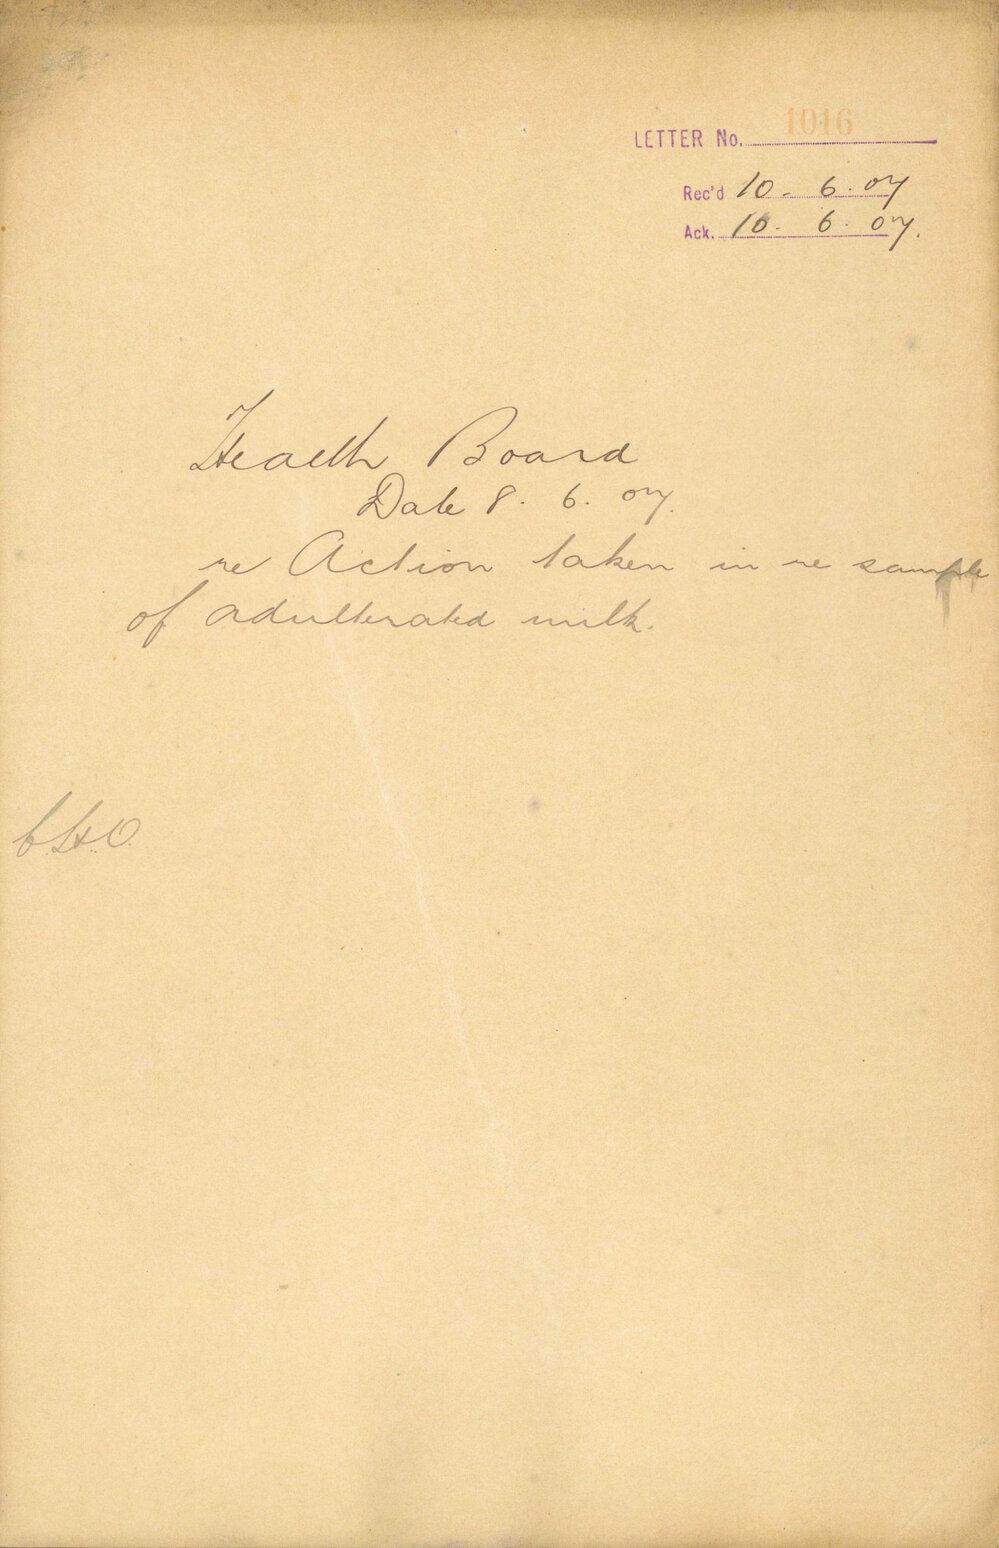 LETTER No. 1016
Rec'd 10. 6. 07
Ack. 10. 6. 07.
Health Board
Date 8. 6. 07.
re Action taken in re sample
of adulterated milk.
C.H.O.